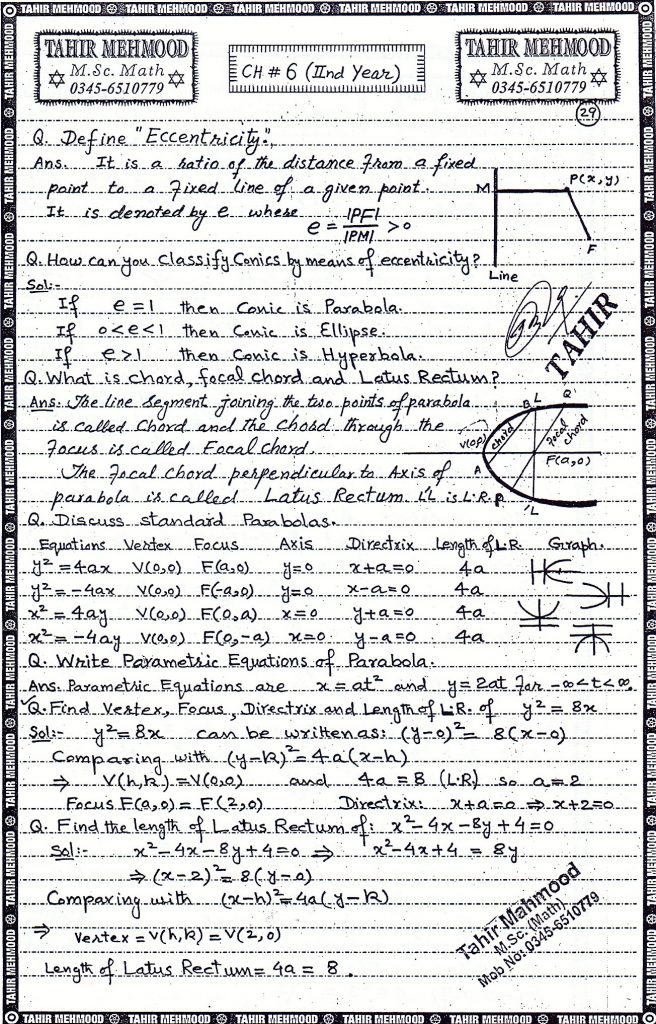 TAHIR MEHMOOD TAHIR MEHMOOD TAHIR MEHMOOD TAHIR MEHMOOD TAHIR MEHMOOD TAHIR MEHMOOD
TAHIR MEHMOOD
M.Sc. Math
0345-6510779
CH # 6 (IInd Year)
TAHIR MEHMOOD
M.Sc. Math
0345-6510779
29
Q. Define "Eccentricity".
Ans. It is a ratio of the distance from a fixed
point to a fixed line of a given point.
It is denoted by e where e = |PF| / |PM| > 0
M P(x,y)
F
Line
Q. How can you Classify Conics by means of eccentricity?
Sol:-
If e = 1 then Conic is Parabola.
If 0<e<1 then Conic is Ellipse.
If e>1 then Conic is Hyperbola.
TAHIR
Q. What is chord, focal chord and Latus Rectum?
Ans: The line Segment joining the two points of parabola
is called Chord and the Chord through the
Focus is called Focal Chord.
The Focal Chord perpendicular to Axis of
parabola is called Latus Rectum. L'L is L.R.
B L Q'
V(0,0) chord Focal chord
A F(a,0)
P 'L
Q. Discuss standard Parabolas.
Equations Vertex Focus Axis Directrix Length of L.R. Graph.
y² = 4ax V(0,0) F(a,0) y=0 x+a=0 4a
y² = -4ax V(0,0) F(-a,0) y=0 x-a=0 4a
x² = 4ay V(0,0) F(0,a) x=0 y+a=0 4a
x² = -4ay V(0,0) F(0,-a) x=0 y-a=0 4a
Q. Write Parametric Equations of Parabola.
Ans. Parametric Equations are x = at² and y = 2at for -∞<t<∞.
Q. Find Vertex, Focus, Directrix and Length of L.R. of y² = 8x
Sol:- y² = 8x can be written as: (y-0)² = 8(x-0)
Comparing with (y-k)² = 4a(x-h)
⇒ V(h,k) = V(0,0) and 4a = 8 (L.R) so a = 2
Focus F(a,0) = F(2,0) Directrix: x+a=0 ⇒ x+2=0
Q. Find the length of Latus Rectum of: x²-4x-8y+4=0
Sol:- x²-4x-8y+4=0 ⇒ x²-4x+4 = 8y
⇒ (x-2)² = 8(y-0)
Comparing with (x-h)² = 4a(y-k)
⇒ Vertex = V(h,k) = V(2,0)
Length of Latus Rectum = 4a = 8.
Tahir Mahmood
M.Sc. (Math)
Mob No: 0345-6510779
TAHIR MEHMOOD TAHIR MEHMOOD TAHIR MEHMOOD TAHIR MEHMOOD TAHIR MEHMOOD TAHIR MEHMOOD